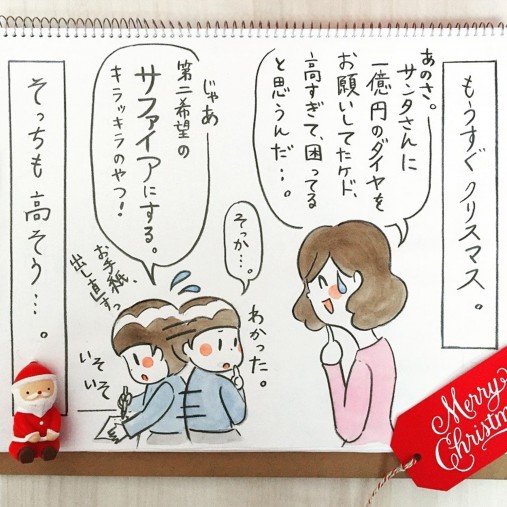 もうすぐクリスマス。
あのさ。
サンタさんに
一億円のダイヤを
お願いしてたケド、
高すぎて、困ってる
と思うんだ…。
そっか…。
わかった。
じゃあ
第二希望の
サファイアにする。
キラッキラのやつ!
お手紙、
出し直すっ
いそ
いそ
そっちも高そう…。
Merry
Christm